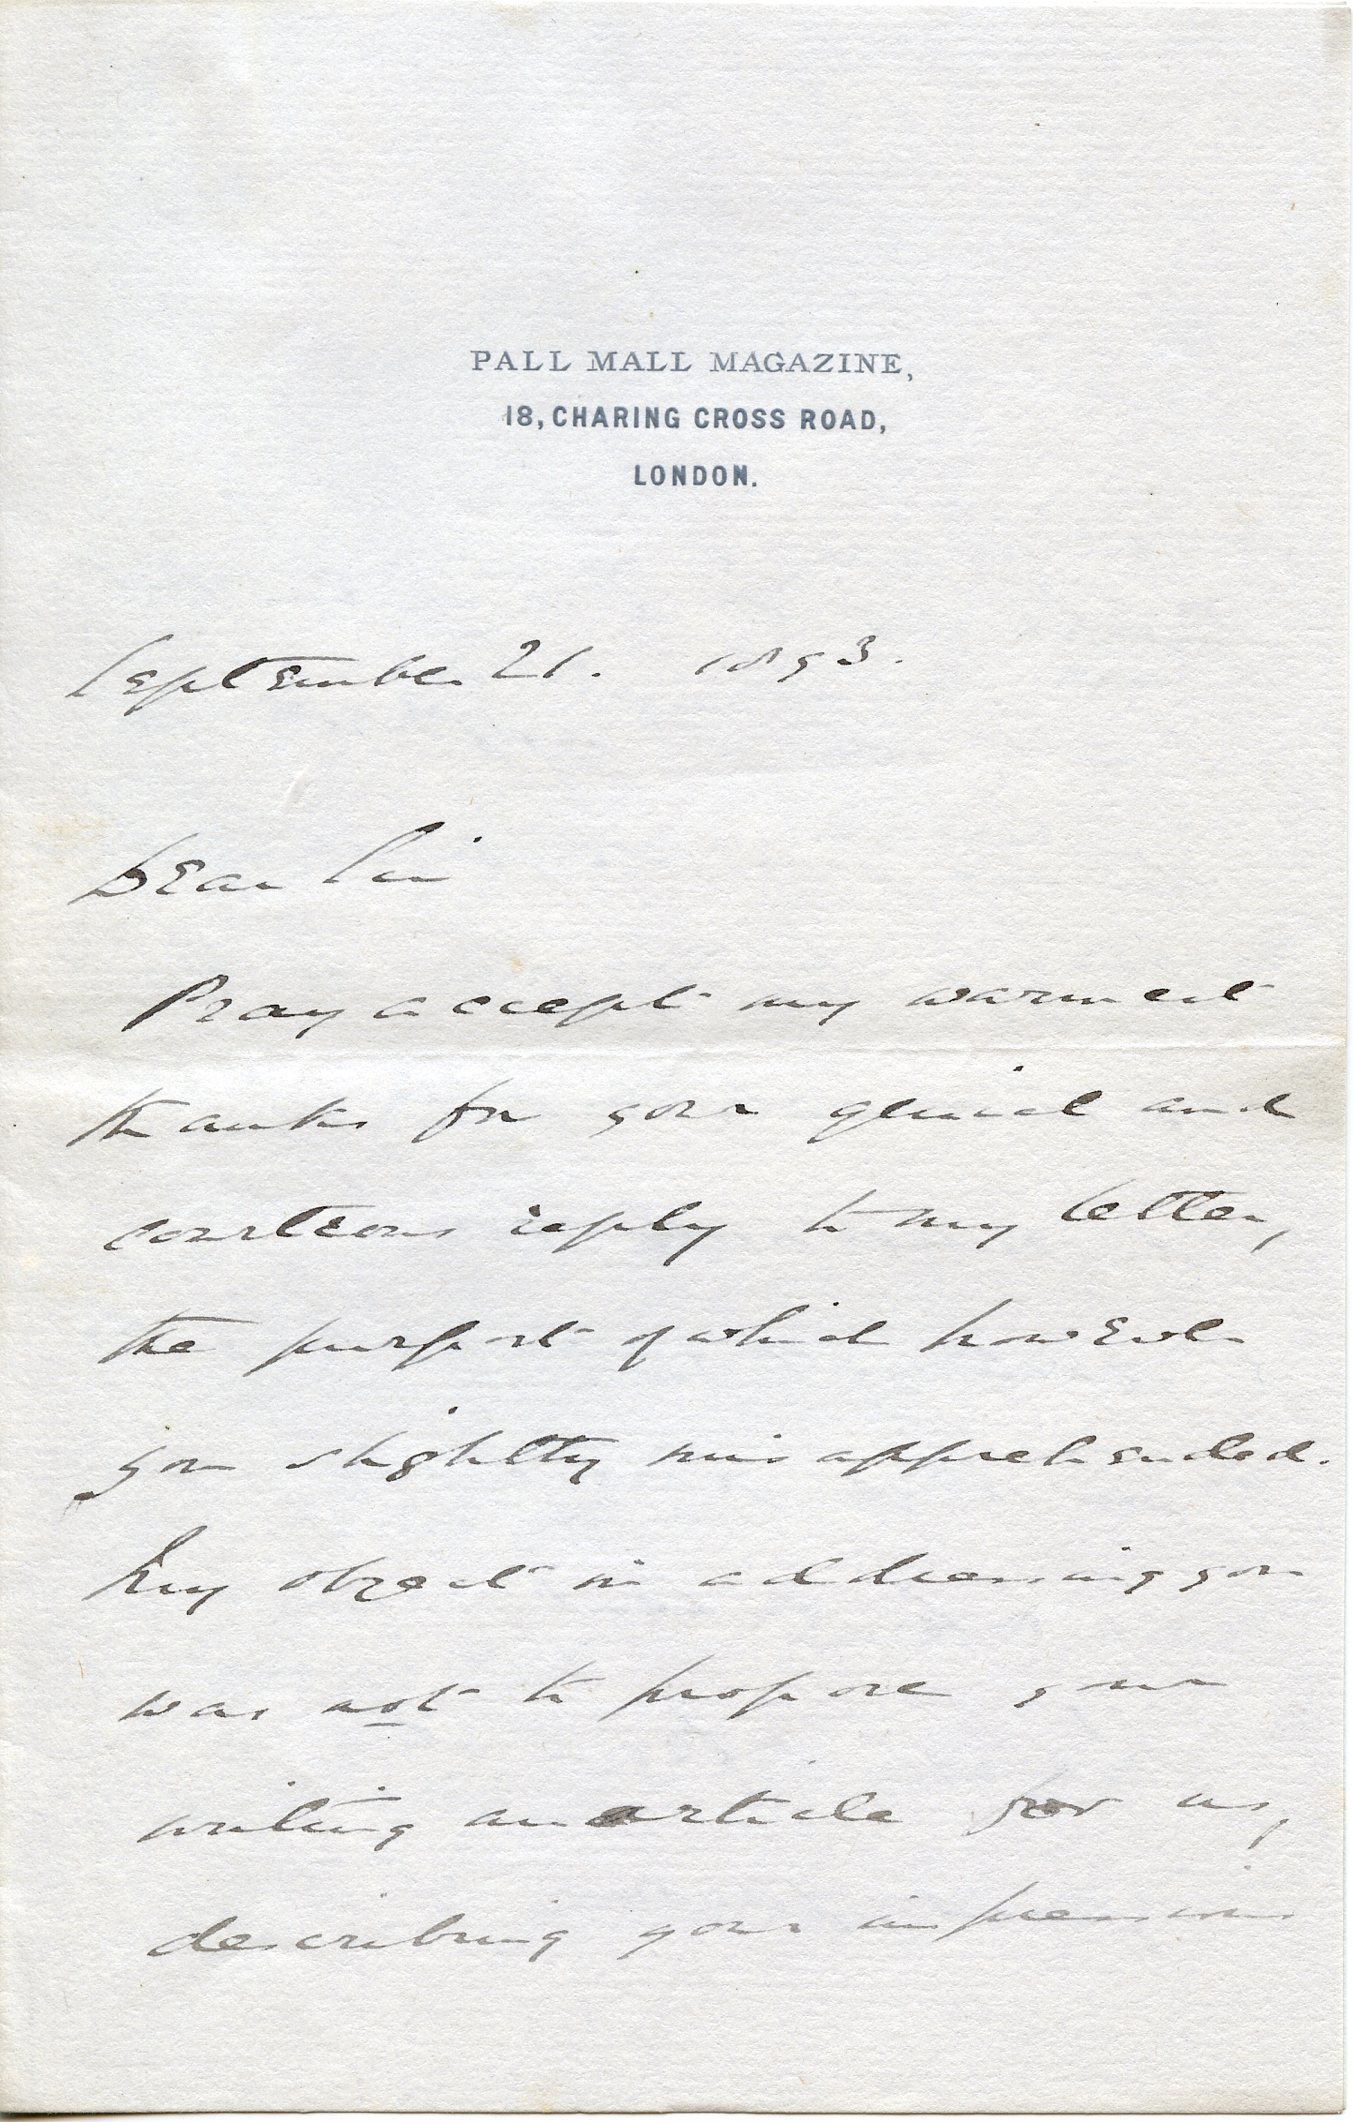 PALL MALL MAGAZINE,
18, CHARING CROSS ROAD,
LONDON.
September 21. 1893.
Dear Sir
Pray accept my warmest
thanks for your genial and
courteous reply to my letter,
the purport of which however
you slightly misapprehended.
My object in addressing you
was not to propose your
writing an article for us,
describing your impressions